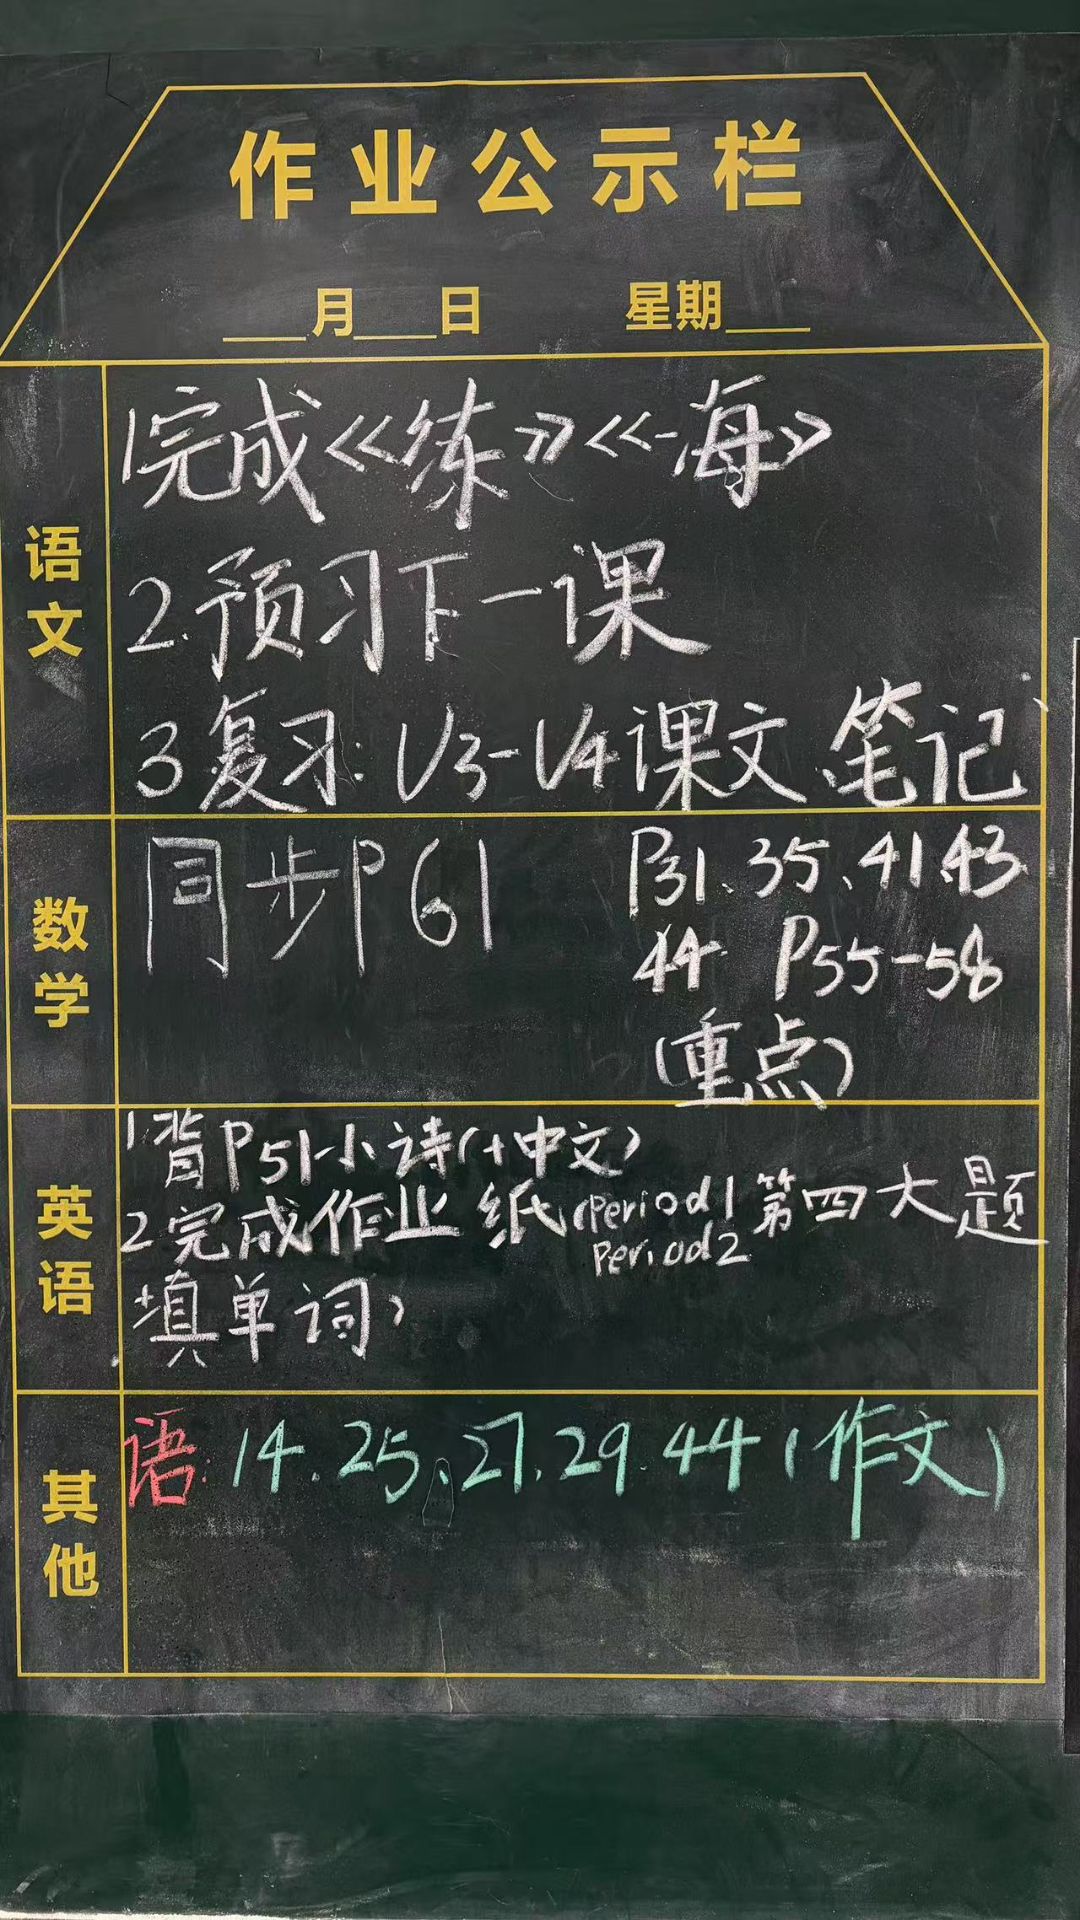 作业公示栏
___月___日 星期___
语文
1完成《练》《-海》
2.预习下一课
3复习:U3-U4课文 笔记
数学
同步P61
P31、35、41、43
44. P55-58
(重点)
英语
1.背P51小诗(+中文)
2完成作业纸(Period1 第四大题
Period2
填单词)
其他
语:14、25、27、29.44(作文)